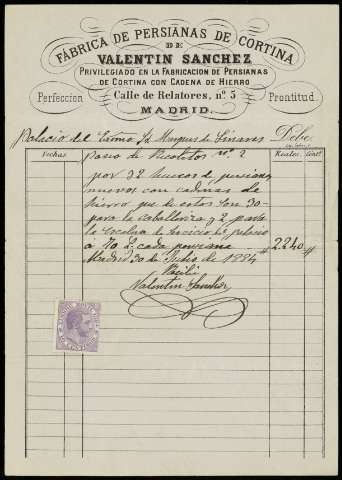 FÁBRICA DE PERSIANAS DE CORTINA
DE
VALENTIN SANCHEZ
PRIVILEGIADO EN LA FABRICACION DE PERSIANAS
DE CORTINA CON CADENA DE HIERRO
Perfeccion Calle de Relatores, nº 5 Prontitud
MADRID.
Palacio del Exmo Sr Marques de Linares Debe
Fechas Paseo de Recoletos nº 2 Reales Cent.
por 32 huecos de persianas
nuevas con cadenas de
hierro que de estos son 30
para la caballeriza y 2 para
la escalera de servicio del palacio
á 70 R. cada persiana 2.240
Madrid 30 de Julio de 1884
Recibí
Valentin Sanchez